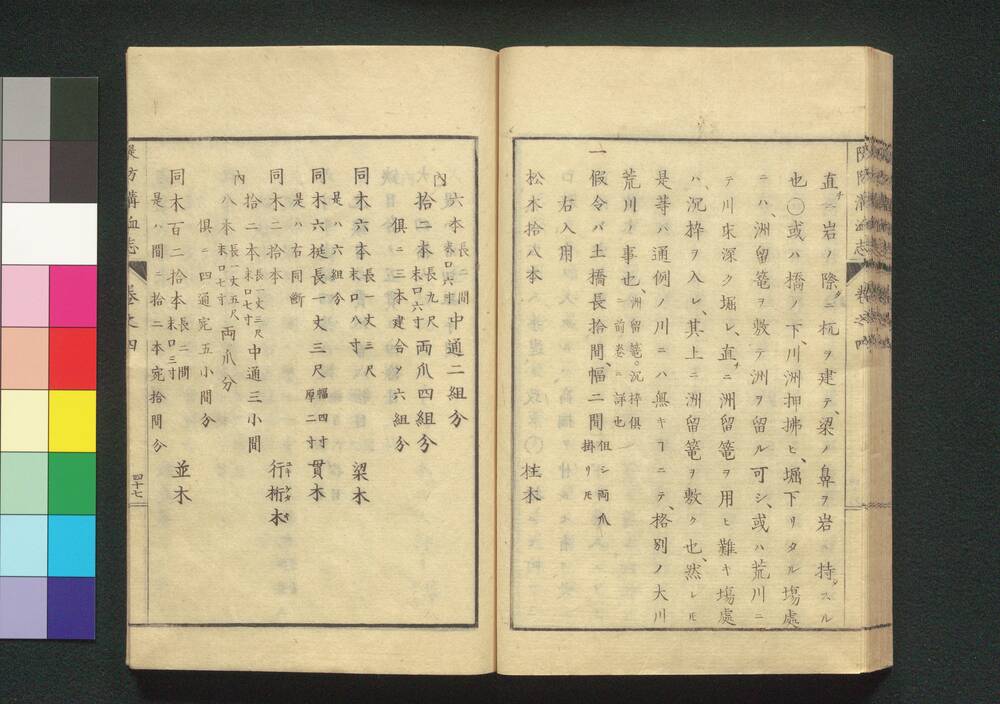 直ニ岩ノ際ニ杭ヲ建テ、梁ノ鼻ヲ岩ヘ持タスル
也〇或ハ橋ノ下、川洲押拂ヒ、堀下リタル塲處
ニハ、洲留篭ヲ敷テ洲ヲ留ル可シ、或ハ荒川ニ
テ川床深ク堀レ、直ニ洲留篭ヲ用ヒ難キ塲處
ハ、沉枠ヲ入レ、其上ニ洲留篭ヲ敷ク也、然レ𪜈
是等ハ通例ノ川ニハ無キヿニテ、格別ノ大川
荒川ノ事也、洲留篭。沉枠俱ニ前巻ニ詳也
一 假令バ土橋長拾間、幅二間但シ両爪掛リ𪜈
右入用
松木拾八本 柱木
内
六本長二間末口六寸中通二組分
拾二本長九尺末口六寸両爪四組分
俱ニ三本建合セ六組分
同木六本長一丈三尺末口八寸 梁木
是ハ六組分
同木六挺長一丈三尺幅四寸厚二寸 貫木
是ハ右同断
同木二拾本 行桁木
内
拾二本長一丈三尺末口七寸中通三小間
八本長一丈五尺末口七寸両爪分
俱ニ四通宛五小間分
同木百二拾本長二間末口三寸 並木
是ハ間ニ拾二本宛拾間分
堤防溝洫志 巻之四 四十七